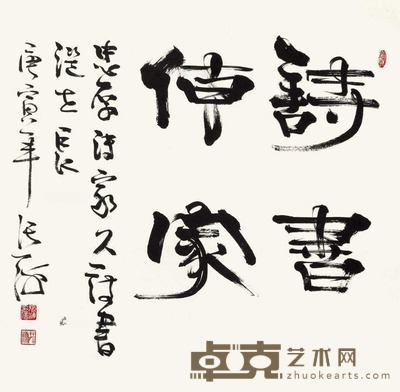 詩書
傳家
忠厚傳家久詩書
繼世長
庚寅年
卓克艺术网
zhuokearts.com